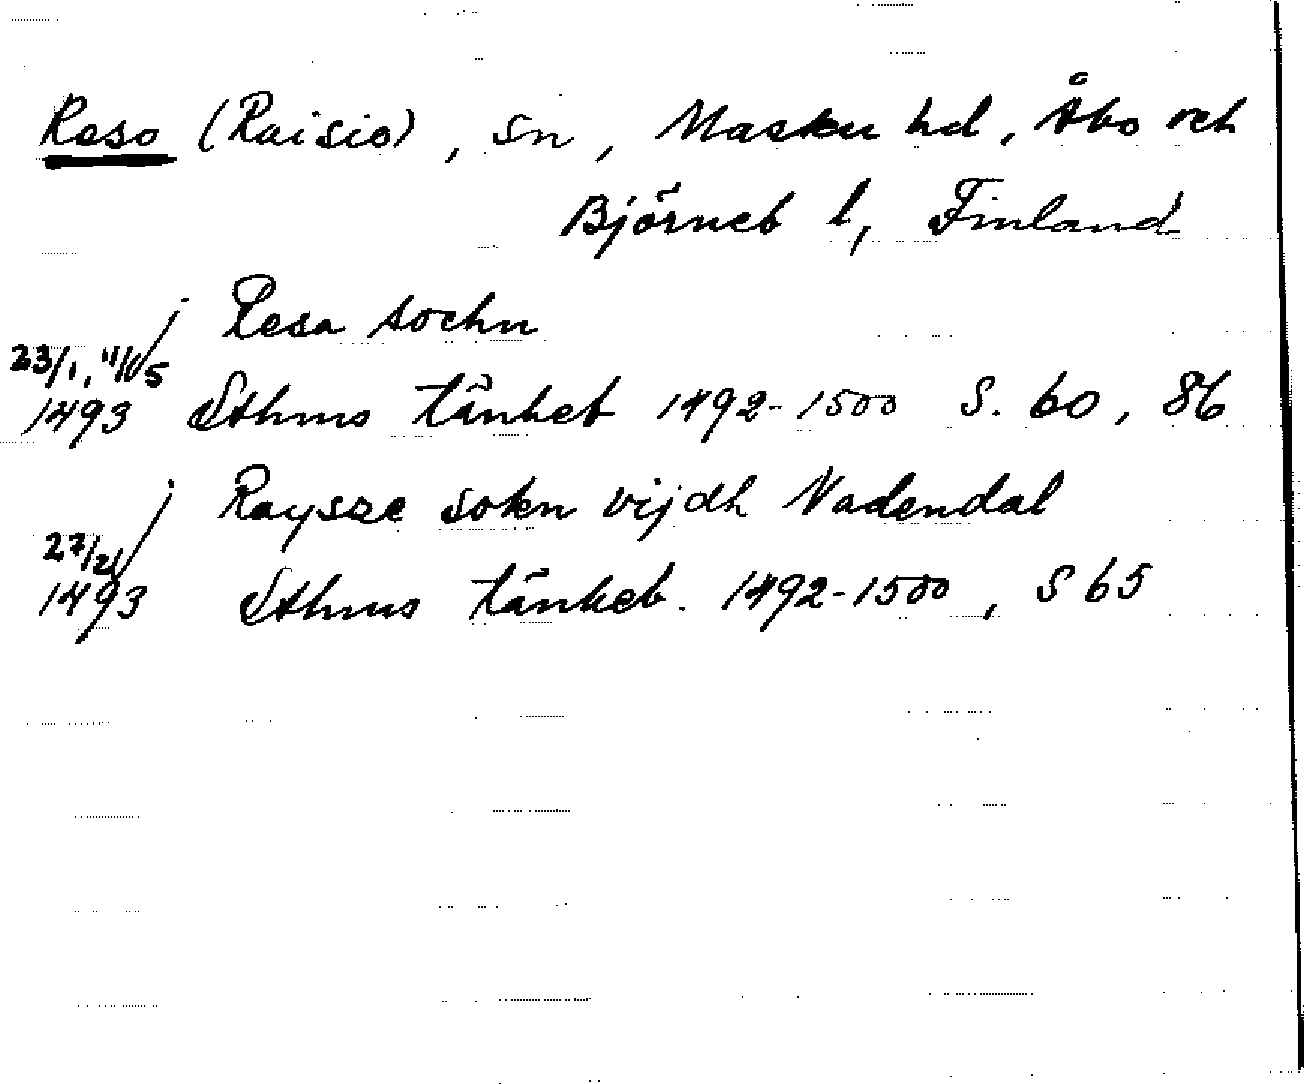 Reso (Raisio), sn, Masku hd, Åbo och
Björneb l, Finland
j Resa sochn
23/1, 11/5
1493 Sthms tänkeb 1492-1500 S. 60, 86
j Raysze sokn vijdh Nadendal
27/2
1493 Sthms tänkeb. 1492-1500, S 65